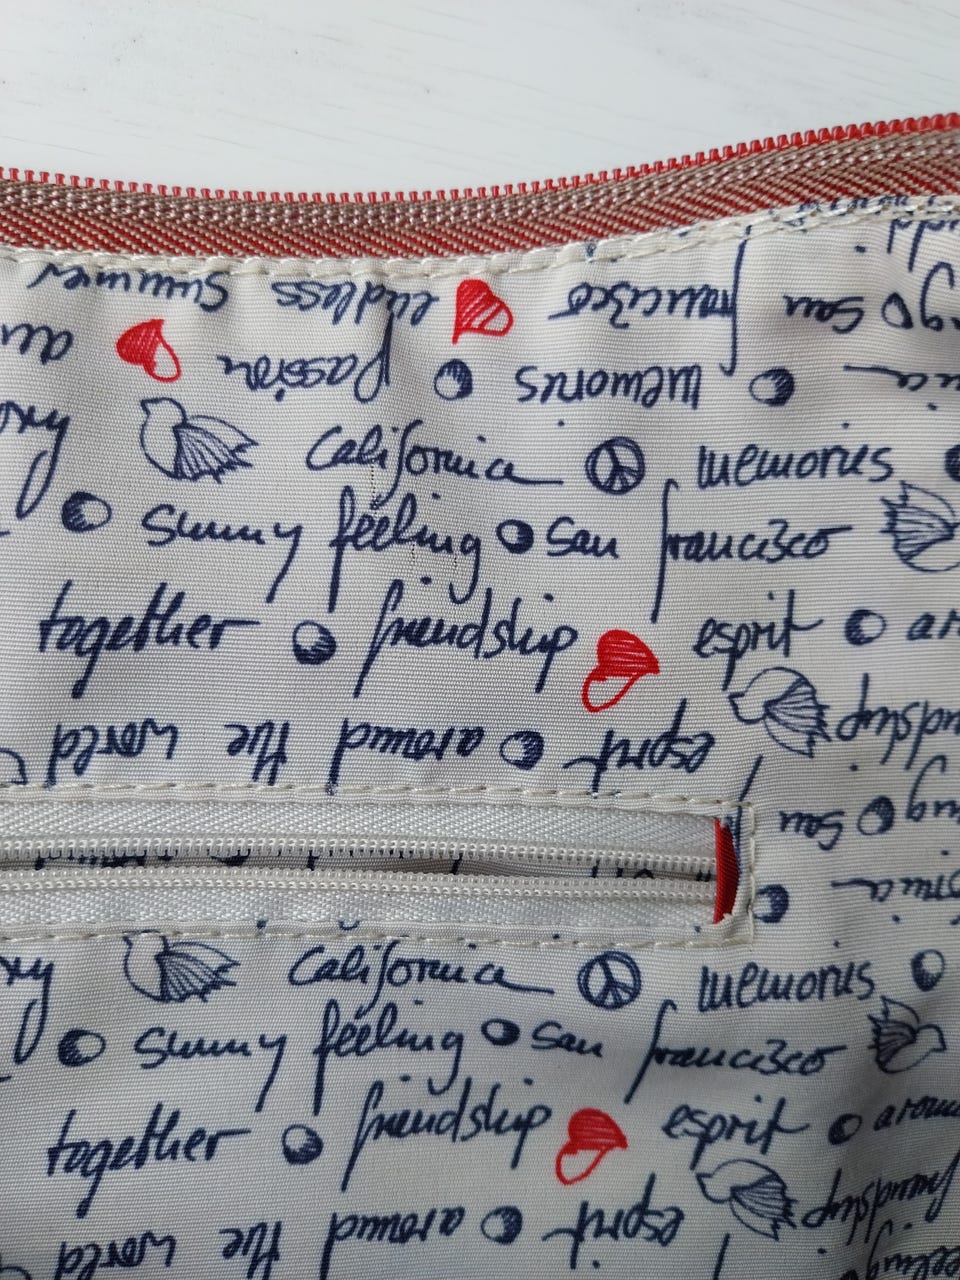 endless summer
san francisco
passion
memories
California memories
sunny feeling san francisco
together friendship esprit
friendship
esprit around the world
san
California memories
sunny feeling san francisco
together friendship esprit
friendship
esprit around the world